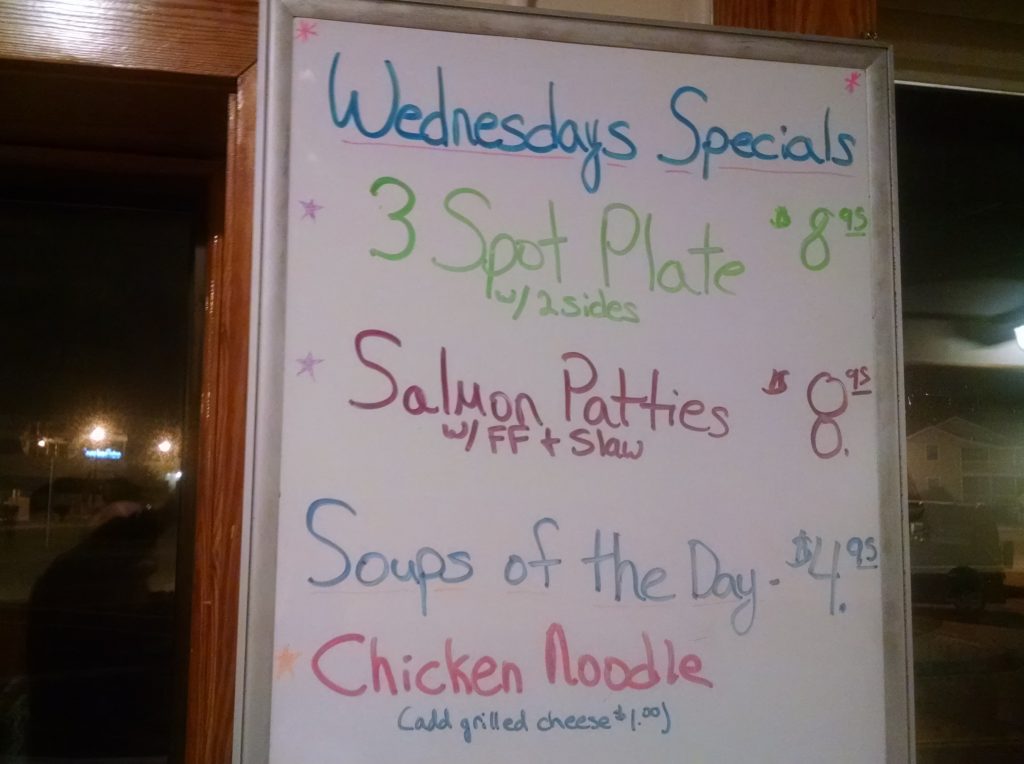 Wednesdays Specials
3 Spot Plate $8.95
w/ 2 sides
Salmon Patties $8.95
w/ FF + Slaw
Soups of the Day - $4.95
Chicken Noodle
(add grilled cheese $1.00)